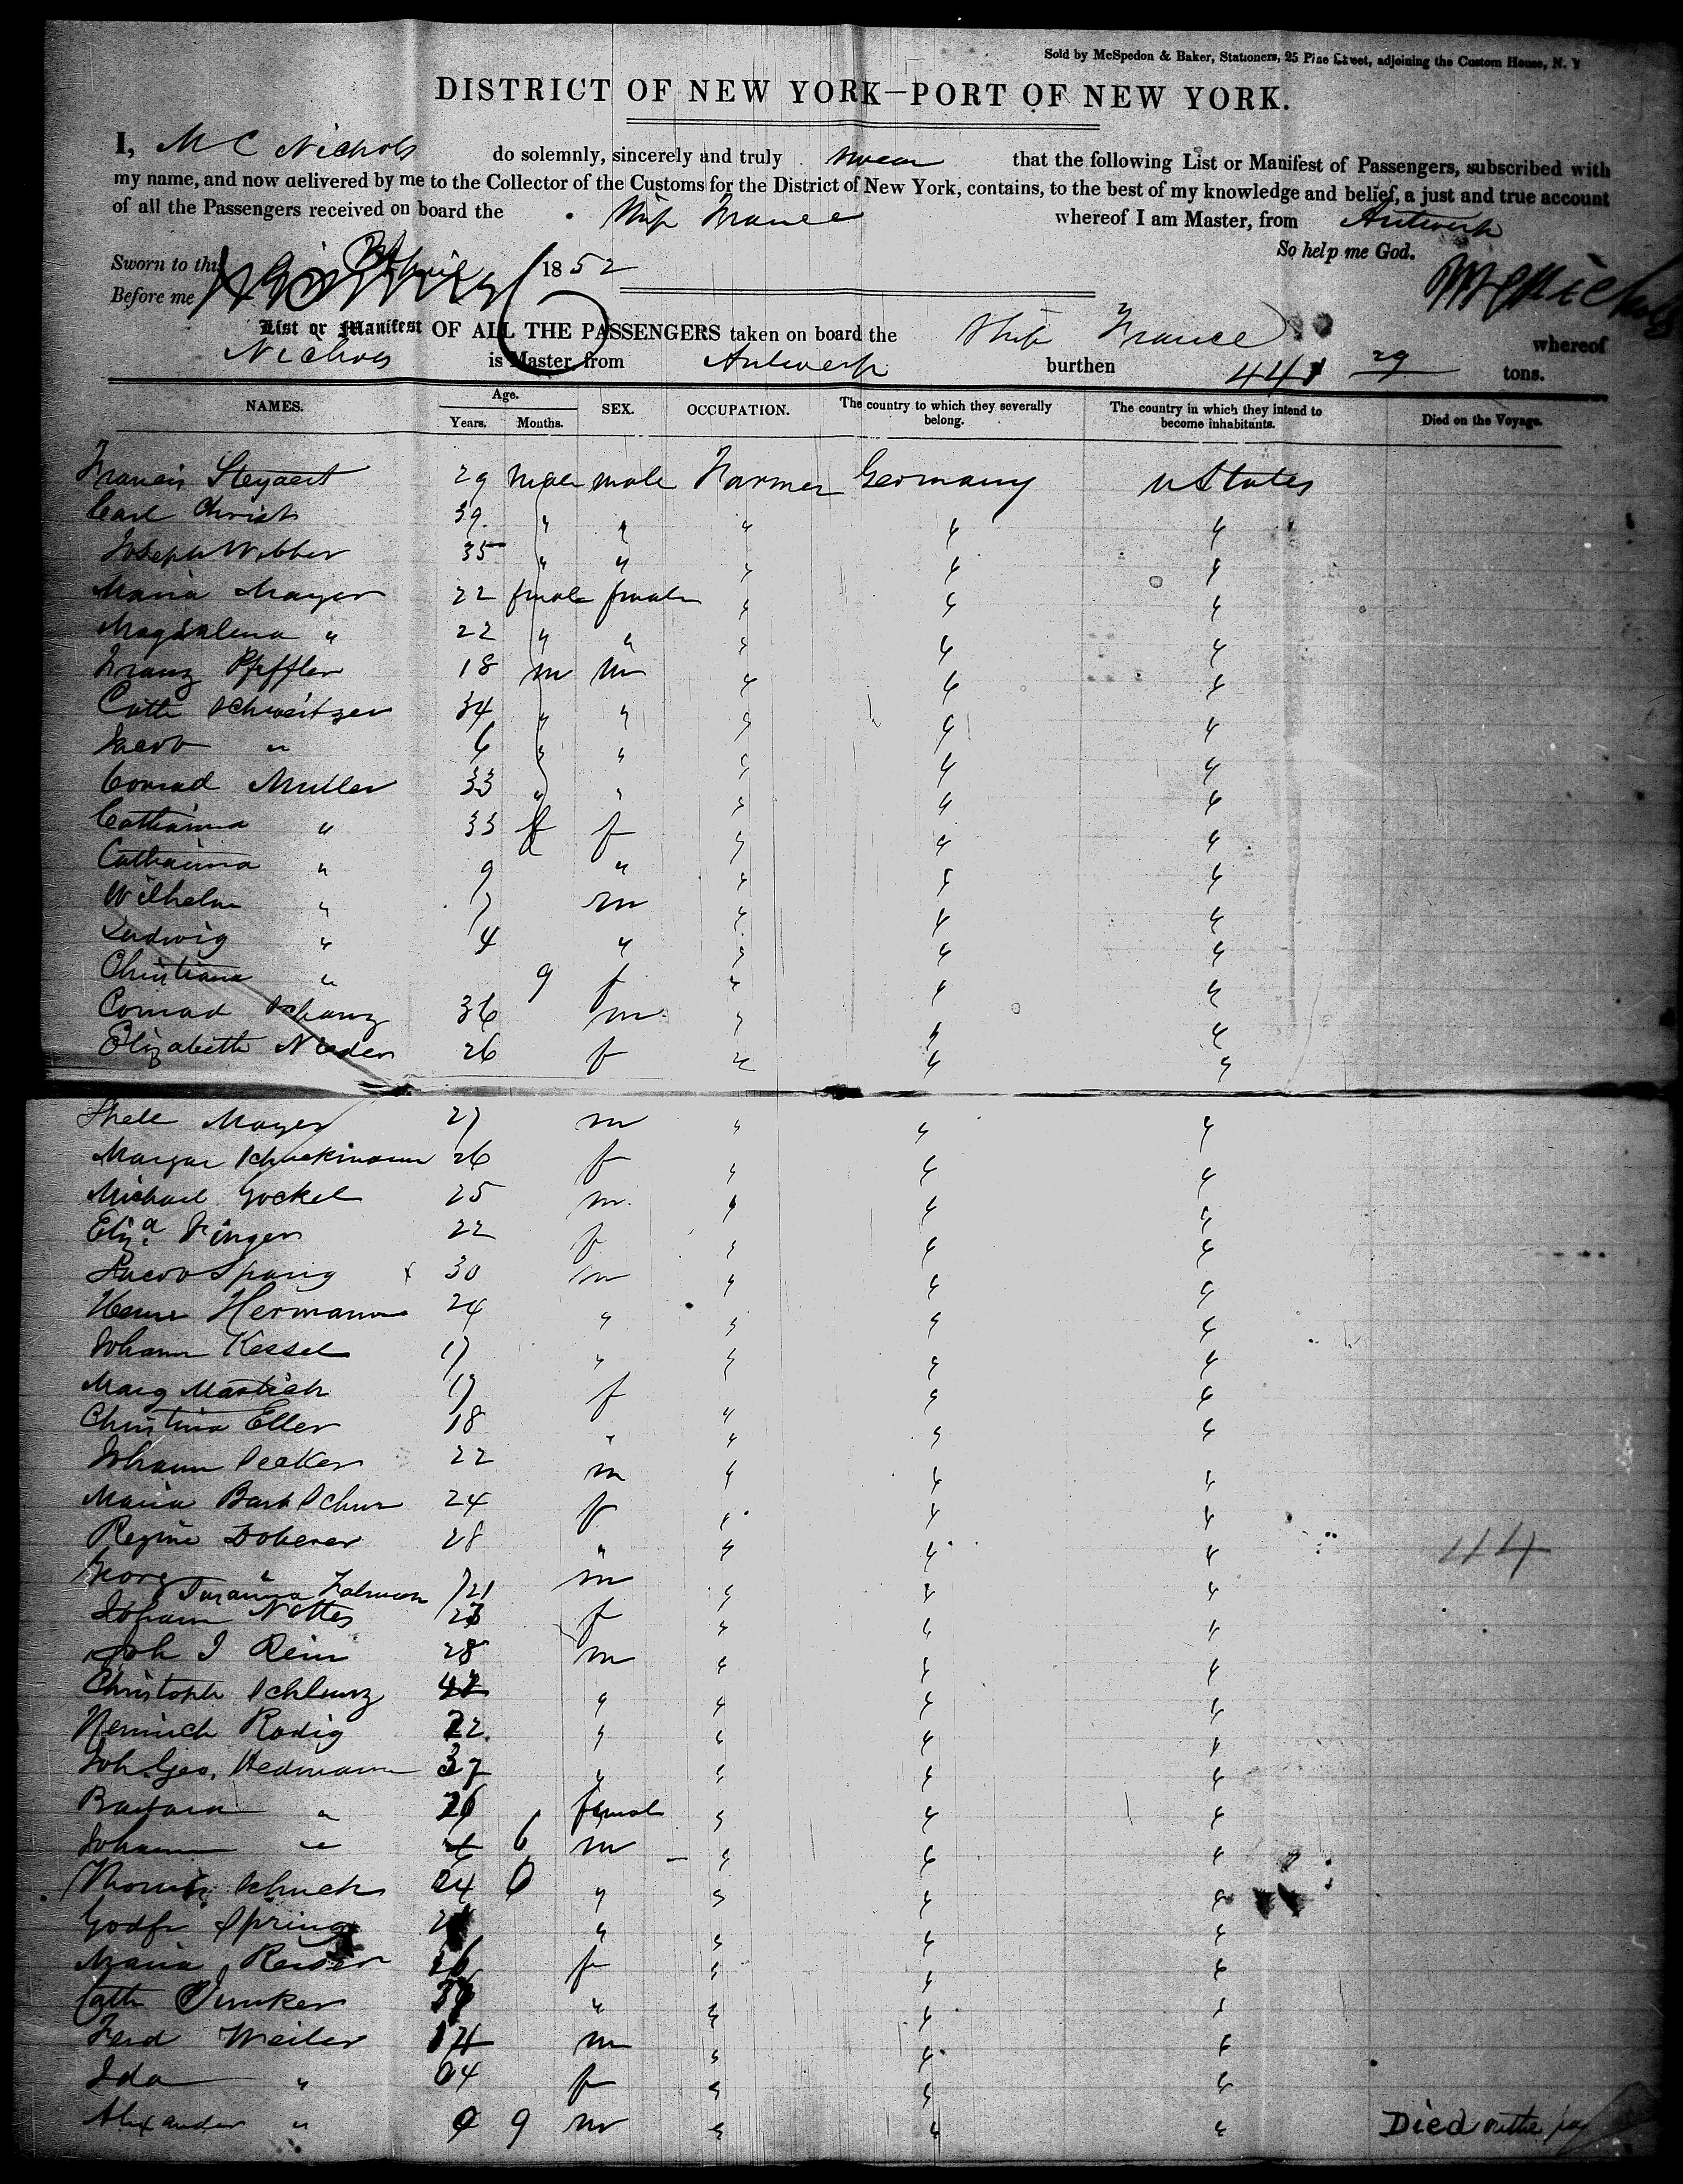 Sold by McSpedon & Baker, Stationers, 25 Pine Street, adjoining the Custom House, N. Y
DISTRICT OF NEW YORK—PORT OF NEW YORK.
I, M C Nichols do solemnly, sincerely and truly swear that the following List or Manifest of Passengers, subscribed with
my name, and now delivered by me to the Collector of the Customs for the District of New York, contains, to the best of my knowledge and belief, a just and true account
of all the Passengers received on board the Ship France whereof I am Master, from Antwerp
So help me God.
Sworn to this April 1852
Before me
M C Nichols
List or Manifest OF ALL THE PASSENGERS taken on board the Ship France whereof
Nichols is Master, from Antwerp burthen 441 29 tons.
NAMES. Age. Years. Months. SEX. OCCUPATION. The country to which they severally belong. The country in which they intend to become inhabitants. Died on the Voyage.
Francis Steyaert 29 male male Farmer Germany U States
Carl Christ 39 " " " " "
Joseph Webber 35 " " " " "
Maria Mayer 22 female female " " "
Magdalena " 22 " " " " "
Franz Pfeffler 18 m m " " "
Cath Schweitzer 34 " " " " "
Jacob " 6 " " " " "
Conrad Muller 33 " " " " "
Catharina " 33 f f " " "
Catharina " 9 " " " "
Wilhelm " 7 m " " "
Ludwig " 4 " " " "
Christiana " 9 f " " "
Conrad Schanz 36 m " " "
Elizabeth Nieder 26 f " " "
Mayer 27 m " " "
Margar Schuckmann 26 f " " "
Michael Gockel 25 m " " "
Eliza Finger 22 f " " "
Jacob Spang x 30 m " " "
Hermann 24 " " " "
Johann Kessel 17 " " " "
Marg Mastich 17 f " " "
Christina Eller 18 " " " "
Johann Decker 22 m " " "
Maria Barb Schur 24 f " " "
Regine Doberer 28 " " " "
Georg " m " " "
21
Johann Nottes f " " "
Joh J Rein 28 m " " "
Christoph Schlunz 42 " " " "
Heinrich Rodig 22 " " " "
Joh Geo. Hedmann 37 " " " "
Barbara " 26 female " " "
Johann " 6 m " " "
Schuch 24 " " " "
Godfr Spring " " " "
Maria Reiser 26 f " " "
Cath Junker " " " "
Ferd Weiler 14 m " " "
Ida " 04 f " " "
Alexander " 0 9 m " " " Died
44